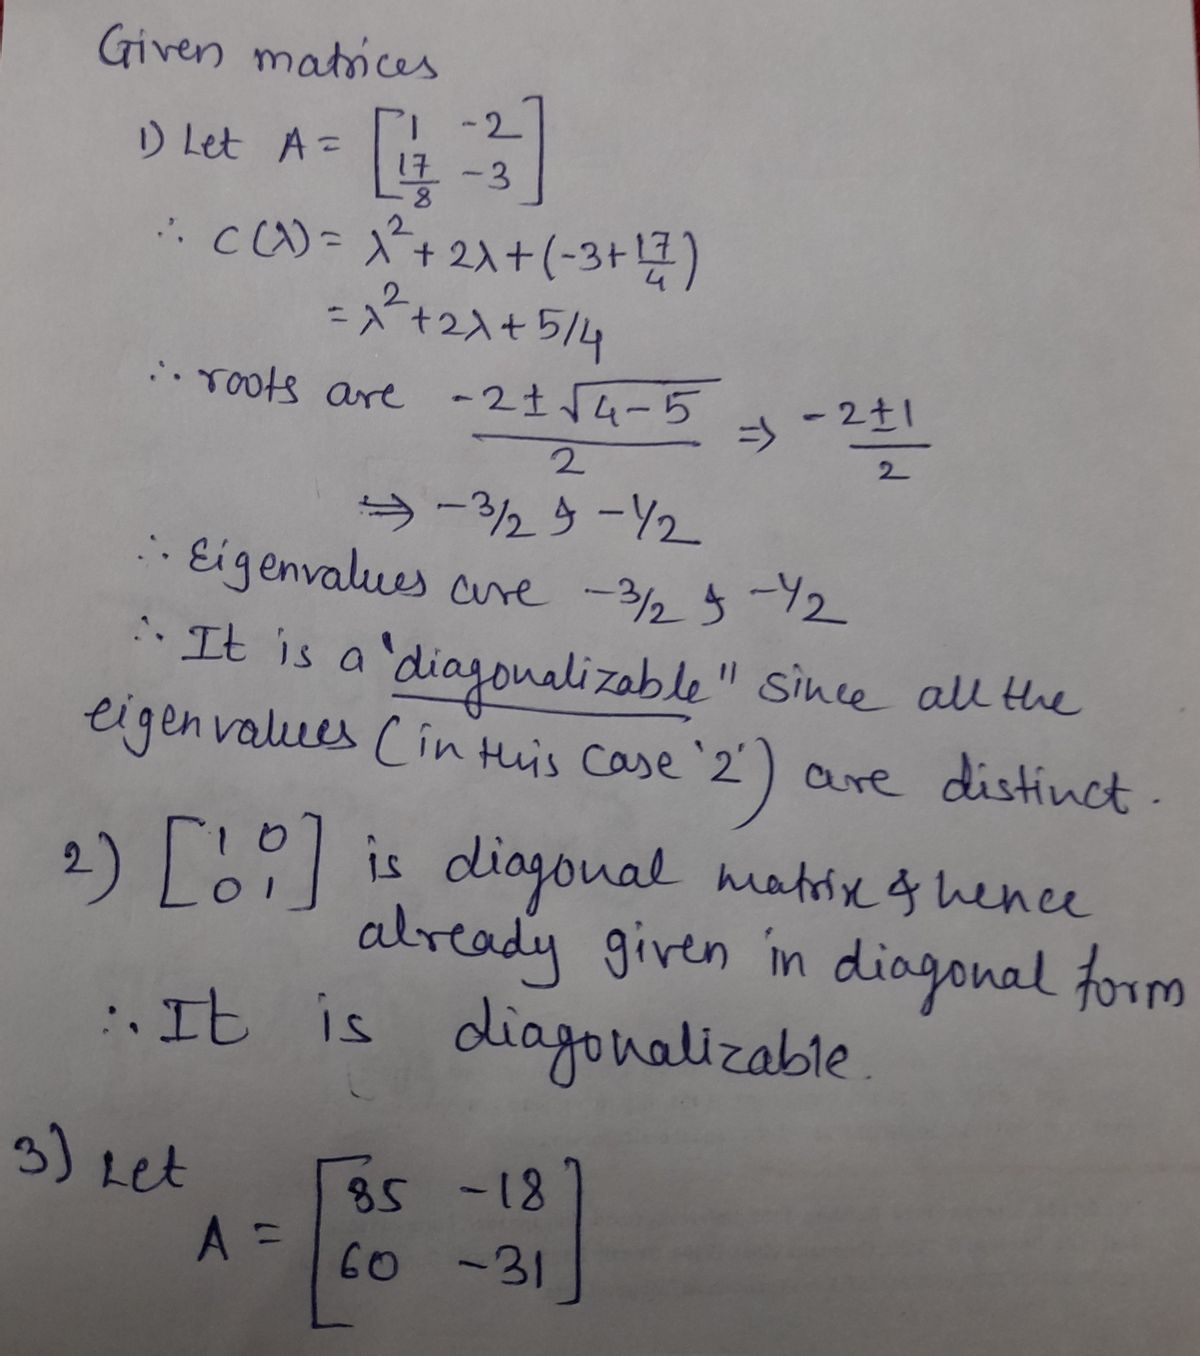 Given matrices
1) Let A = [1 -2
17/8 -3]
∴ C(λ) = λ² + 2λ + (-3 + 17/4)
= λ² + 2λ + 5/4
∴ roots are (-2 ± √(4-5))/2 ⇒ (-2±1)/2
⇒ -3/2 & -1/2
∴ Eigenvalues are -3/2 & -1/2
∴ It is a "diagonalizable" since all the
eigenvalues (in this case '2') are distinct.
2) [1 0
0 1] is diagonal matrix & hence
already given in diagonal form
∴ It is diagonalizable.
3) Let
A = [35 -18
60 -31]